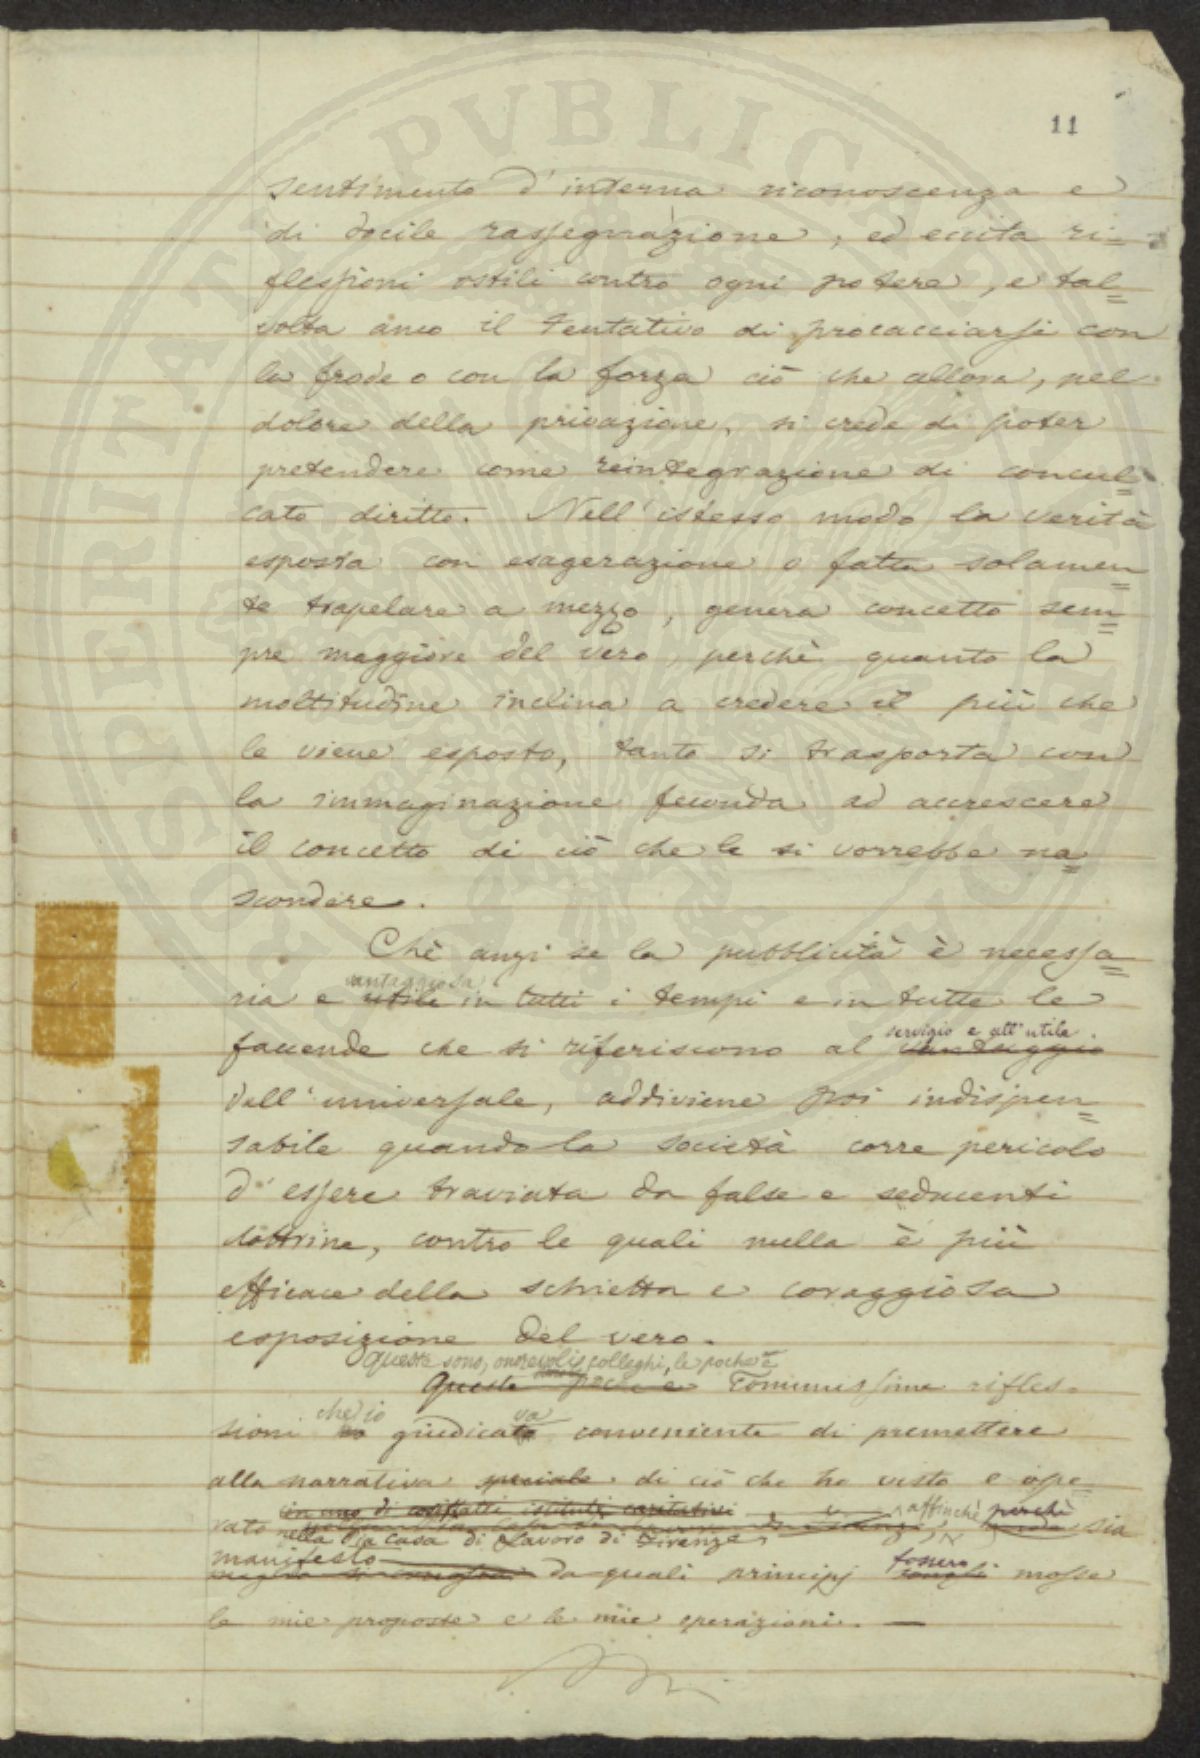 11
sentimento d'interna riconoscenza e
di docile rassegnazione, ed eccita ri=
flessioni ostili contro ogni potere, e tal=
volta anco il tentativo di procacciarsi con
la frode o con la forza ciò che allora, nel
dolore della privazione, si crede di poter
pretendere come reintegrazione di concul=
cato diritto. Nell'istesso modo la verità
esposta con esagerazione o fatta solamen=
te trapelare a mezzo, genera concetto sem=
pre maggiore del vero, perchè quanto la
moltitudine inclina a credere il più che
le viene esposto, tanto si trasporta con
la immaginazione feconda ad accrescere
il concetto di ciò che le si vorrebbe na=
scondere.
Chè anzi se la pubblicità è necessa=
vantaggiosa
ria e utile in tutti i tempi e in tutte le
servigio e all'utile
faccende che si riferiscono al vantaggio
dell'universale, addiviene poi indispen=
sabile quando la società corre pericolo
d'essere traviata da false e seducenti
dottrine, contro le quali nulla è più
efficace della schietta e coraggiosa
esposizione del vero.
Queste sono, onorevoli colleghi, le poche e
Queste poche e comunissime rifles=
che io va
sioni ho giudicato conveniente di premettere
alla narrativa speciale di ciò che ho visto e ope=
in uno di cosiffatti istituti caritativi affinchè perchè
rato sia
nella Pia Casa di Lavoro di Firenze,
manifesto fossero
da quali principj mosse
le mie proposte e le mie operazioni. —
PVBLICAE
PROSPERITATIS